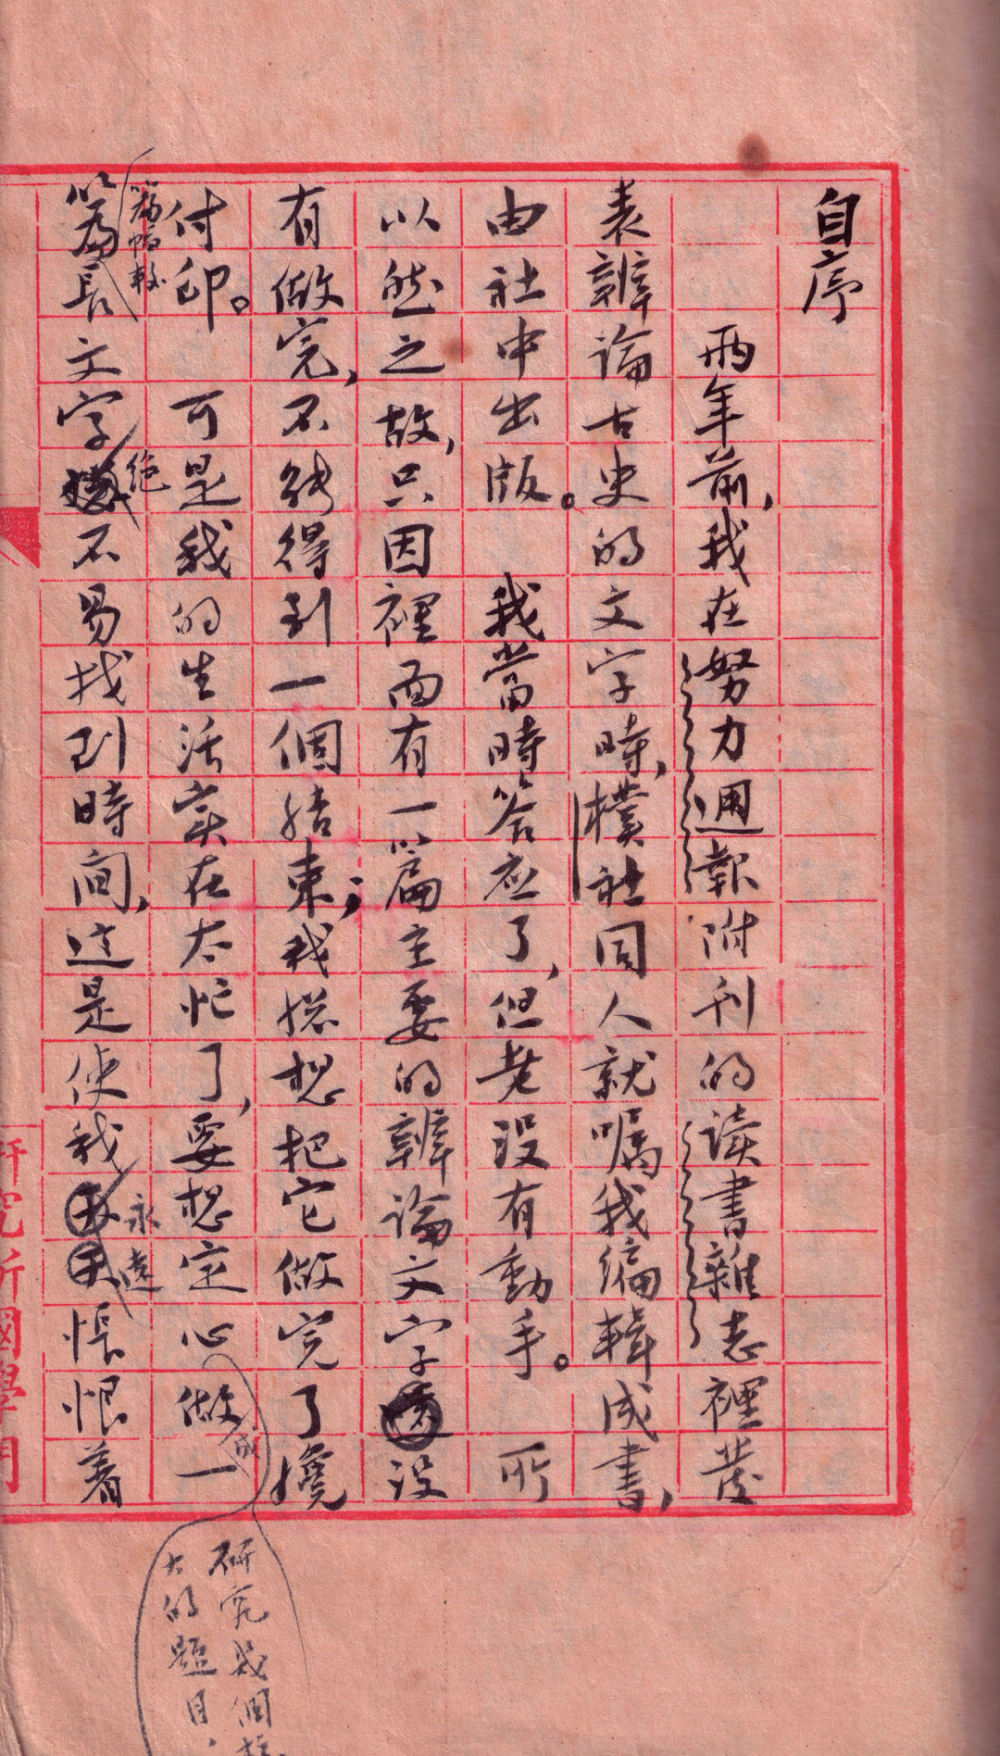 自序
兩年前，我在努力週報附刊的读書雜志裡發
表辨論古史的文字時，樸社同人就嘱我编輯成書，
由社中出版。我當時答应了，但老没有動手。所
以然之故，只因裡面有一篇主要的辨論文字没
有做完，不能得到一個结束；我總想把它做完了纔
付印。可是我的生活实在太忙了，要想定心做一
成
研究幾個
大的題目，
篇長文字
篇幅較
絶
不易找到時间，这是使我
永遠
恨恨着